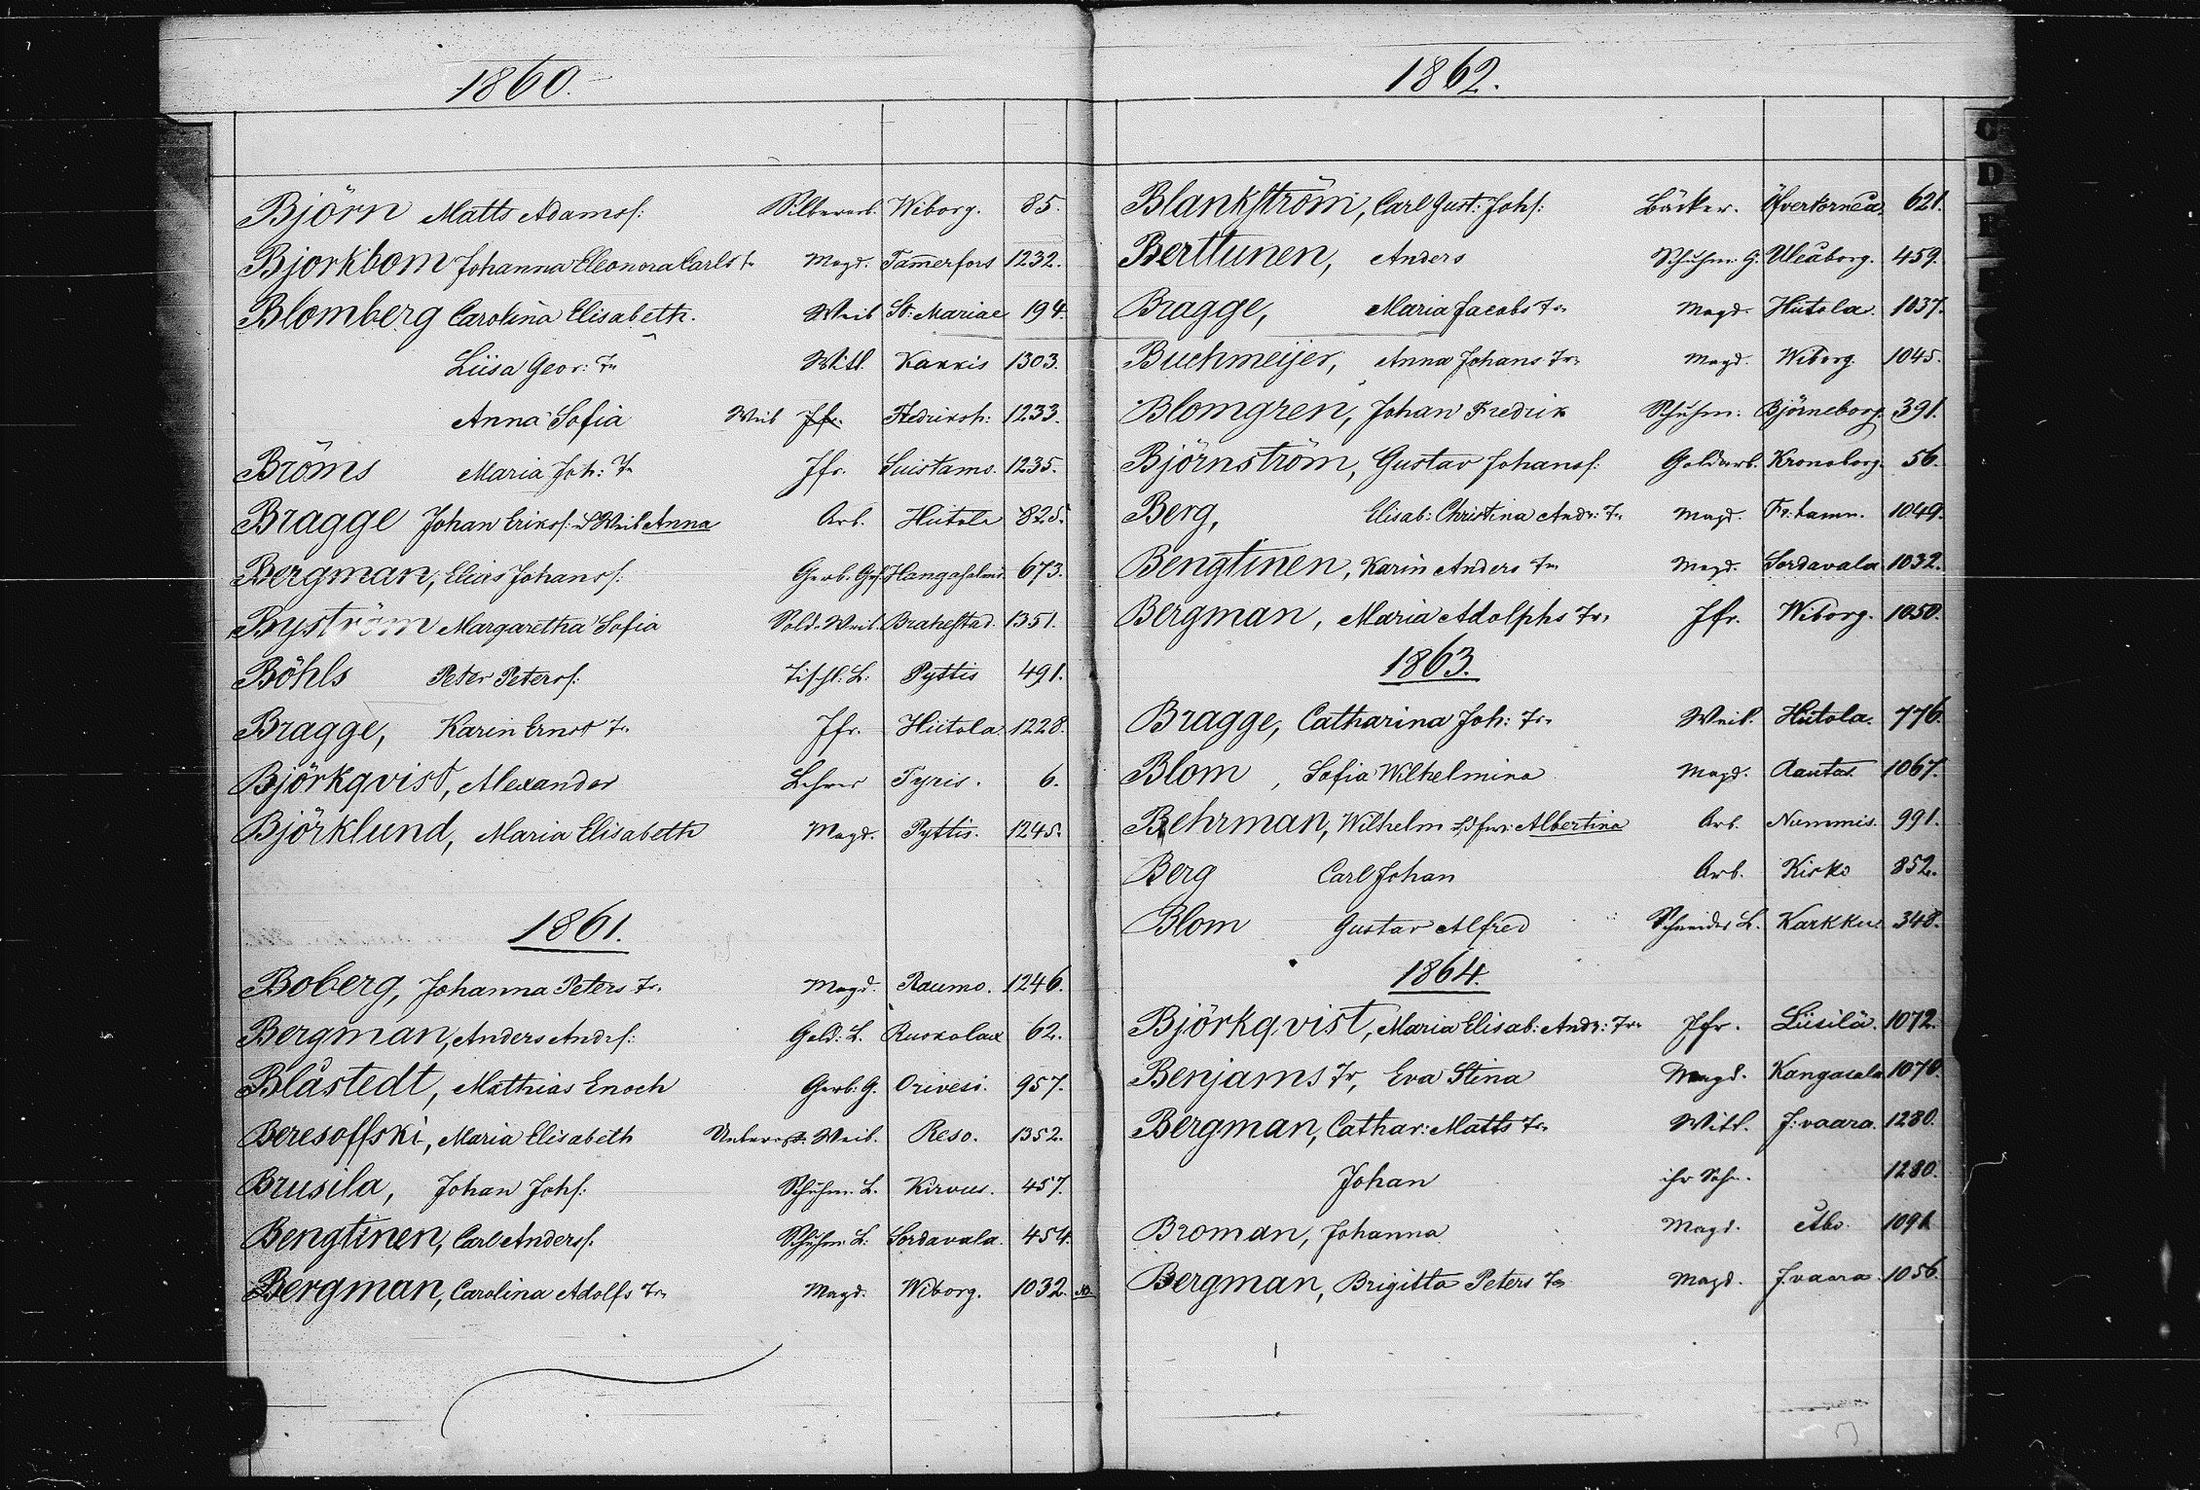 1860.
Björn Matts Adamss: Silberarb. Wiborg. 85.
Bjorkbom Johanna Eleonora Carls tr Magd. Tam̅erfors 1232.
Blomberg Carolina Elisabeth. Weib St: Mariae 194.
Liisa Geor: Tr Witt. Kakkis 1303.
Anna Sofia Weib Jfr. Fredriksh: 1233.
Bröms Maria Joh: Tr Jfr. Suistamo. 1235.
Bragge Johan Erikss: u Weib Anna Arb. Hiitola 825.
Bergman, Elias Johanss: Gerb. Ges. 673.
Byström Margaretha Sofia Sold. Weib. Brahestad. 1351.
Böhls Peter Peterss: Tischl. L: Pyttis 491.
Bragge, Karin Ernst Tr. Jfr. Hiitola 1228.
Björkqvist, Alexander Lehrer Tyris. 6.
Björklund, Maria Elisabeth Magd. Pyttis. 1245.
1861.
Boberg, Johanna Peters Tr. Magd. Raumo. 1246.
Bergman, Anders Andrs: Gold: L. Ruokolax 62.
Blåstedt, Mathias Enoch Gerb: G. Orivesi. 957.
Beresoffski, Maria Elisabeth Weib. Reso. 1352.
Brusila, Johan Johs: Schuhm. L. Kirvus. 457.
Bengtinen, Carl Anderss: Schuhm L: Sordavala. 454.
Bergman, Carolina Adolfs Tr. Magd. Wiborg. 1032.
1862.
Blankström, Carl Gust: Johs: Bäcker. Öfvertorneå. 621.
Berttunen, Anders Schuhm. G. Uleåborg. 459.
Bragge, Maria Jacobs Tr. Magd. Hiitola. 1037.
Buchmeijer, Anna Johans Tr. Magd. Wiborg 1045.
Blomgren, Johan Fredrik Schuhm: Björneborg. 391.
Björnström, Gustav Johanss: Goldarb. Kronoborg. 56.
Berg, Elisab: Christina Andr: Tr. Magd. Fr: hamn. 1049.
Bengtinen, Karin Anders Tr Magd. Sordavala. 1032.
Bergman, Maria Adolphs Tr. Jfr. Wiborg. 1050.
1863.
Bragge, Catharina Joh: Tr. Weib. Hiitola. 776.
Blom, Sofia Wilhelmina Magd. Rautus. 1067.
Behrman, Wilhelm Albertina Arb. Nummis. 991.
Berg Carl Johan Arb. Kisko 852.
Blom Gustav Alfred Schneider L. Karkku 348.
1864.
Björkqvist, Maria Elisab: Andr: Tr. Jfr. Liisilä. 1072.
Benjams Tr, Eva Stina Magd. Kangasala 1070.
Bergman, Cathar: Matts Tr. Witt. J: vaara. 1280.
Johan ihr Sohn. 1280.
Broman, Johanna Magd. Åbo. 1091.
Bergman, Brigitta Peters Tr Magd. J vaara. 1056.
C
D